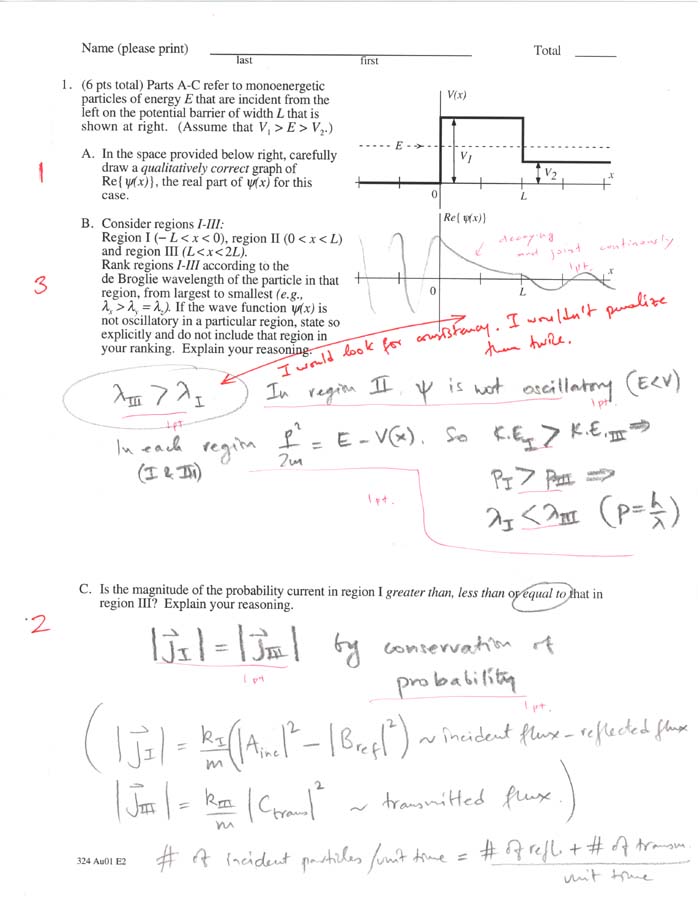 Name (please print)
last
first
Total
1. (6 pts total) Parts A-C refer to monoenergetic
particles of energy E that are incident from the
left on the potential barrier of width L that is
shown at right. (Assume that V₁ > E > V₂.)
V(x)
E
V₁
V₂
0
L
x
1
A. In the space provided below right, carefully
draw a qualitatively correct graph of
Re{ψ(x)}, the real part of ψ(x) for this
case.
Re{ψ(x)}
decaying
and joint continously
1pt.
0
L
x
3
B. Consider regions I-III:
Region I (– L < x < 0), region II (0 < x < L)
and region III (L < x < 2L).
Rank regions I-III according to the
de Broglie wavelength of the particle in that
region, from largest to smallest (e.g.,
λₓ > λᵧ = λ_z). If the wave function ψ(x) is
not oscillatory in a particular region, state so
explicitly and do not include that region in
your ranking. Explain your reasoning.
I would look for consistancy. I wouldn't penalize
them twice.
λ_III > λ_I
1pt
In region II, ψ is not oscillatory (E<V)
1pt.
In each region p²/2m = E – V(x). So K.E_I > K.E._III ⇒
(I & III)
p_I > p_III ⇒
1pt.
λ_I < λ_III (p = h/λ)
C. Is the magnitude of the probability current in region I greater than, less than or equal to that in
region III? Explain your reasoning.
2
|j⃗_I| = |j⃗_III| by conservation of
1pt
probability
1pt.
(|j⃗_I| = k_I/m (|A_inc|² – |B_ref|²) ~ incident flux – reflected flux
|j⃗_III| = k_III/m |C_trans|² ~ transmitted flux.)
324 Au01 E2
# of incident particles/unit time = # of refl. + # of transm.
unit time